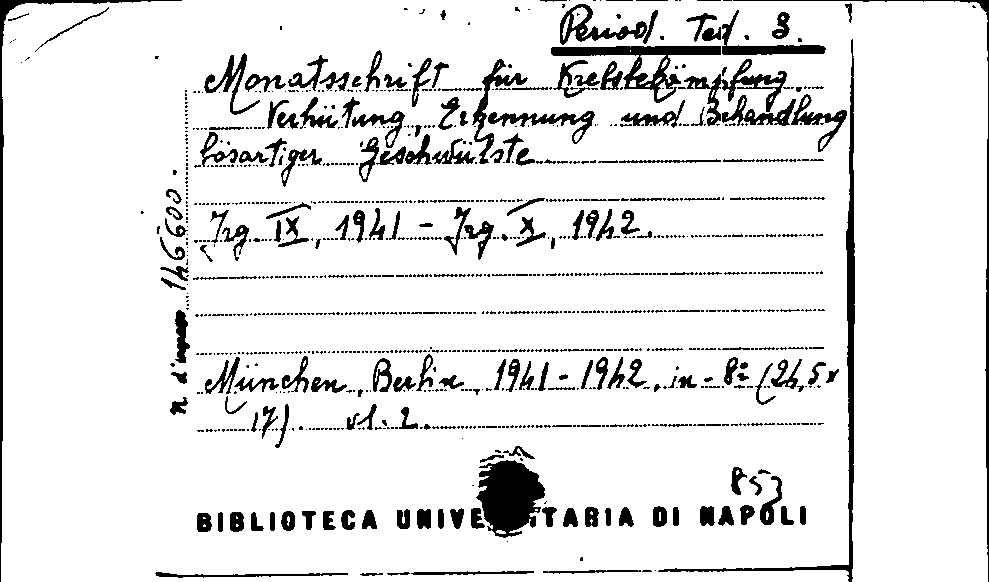 Period. Ted. 3.
Monatsschrift für Krebsbekämpfung.
Verhütung, Erkennung und Behandlung
bösartiger Geschwülste.
Jrg. IX, 1941 - Jrg. X, 1942.
München, Berlin, 1941-1942, in-8° (24,5x
17). vl. 2.
n. d'ingresso 146600.
853
BIBLIOTECA UNIVE ITARIA DI NAPOLI